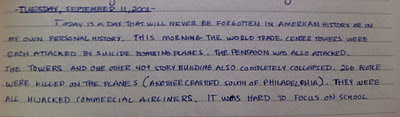 -TUESDAY, SEPTEMBER 11, 2001-
TODAY IS A DAY THAT WILL NEVER BE FORGOTTEN IN AMERICAN HISTORY OR IN
MY OWN PERSONAL HISTORY. THIS MORNING THE WORLD TRADE CENTER TOWERS
WERE EACH ATTACKED BY SUICIDE BOMBING PLANES. THE PENTAGON WAS ALSO ATTACKED.
THE TOWERS, AND ONE OTHER 40+ STORY BUILDING ALSO COMPLETELY COLLAPSED. 266 PEOPLE
WERE KILLED ON THE PLANES (ANOTHER CRASHED SOUTH OF PHILADELPHIA). THEY WERE
ALL HIJACKED COMMERCIAL AIRLINERS. IT WAS HARD TO FOCUS ON SCHOOL